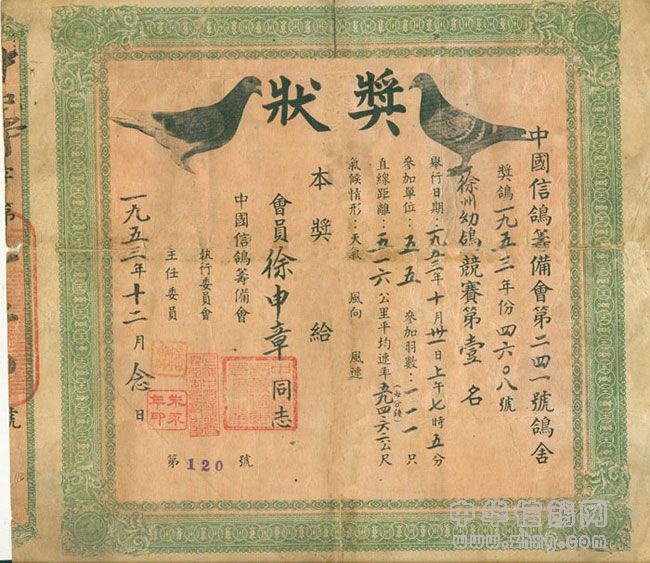 獎狀
中國信鴿籌備會第二四一號鴿舍
獎鴿一九五三年份四六〇八號
徐州幼鴿競賽第壹名
舉行日期：一九五三年十月卅一日上午七時五分
參加單位：五五 參加羽數：一一一只
直線距離：五一六公里平均速率九四六·六二公尺
(每分鐘)
氣候情形：天氣 風向 風速
本獎給
會員徐申章同志
中國信鴿籌備會
執行委員會
主任委員
一九五三年十二月念日
第120號
號
中华信鸽网
www.zhxg.com